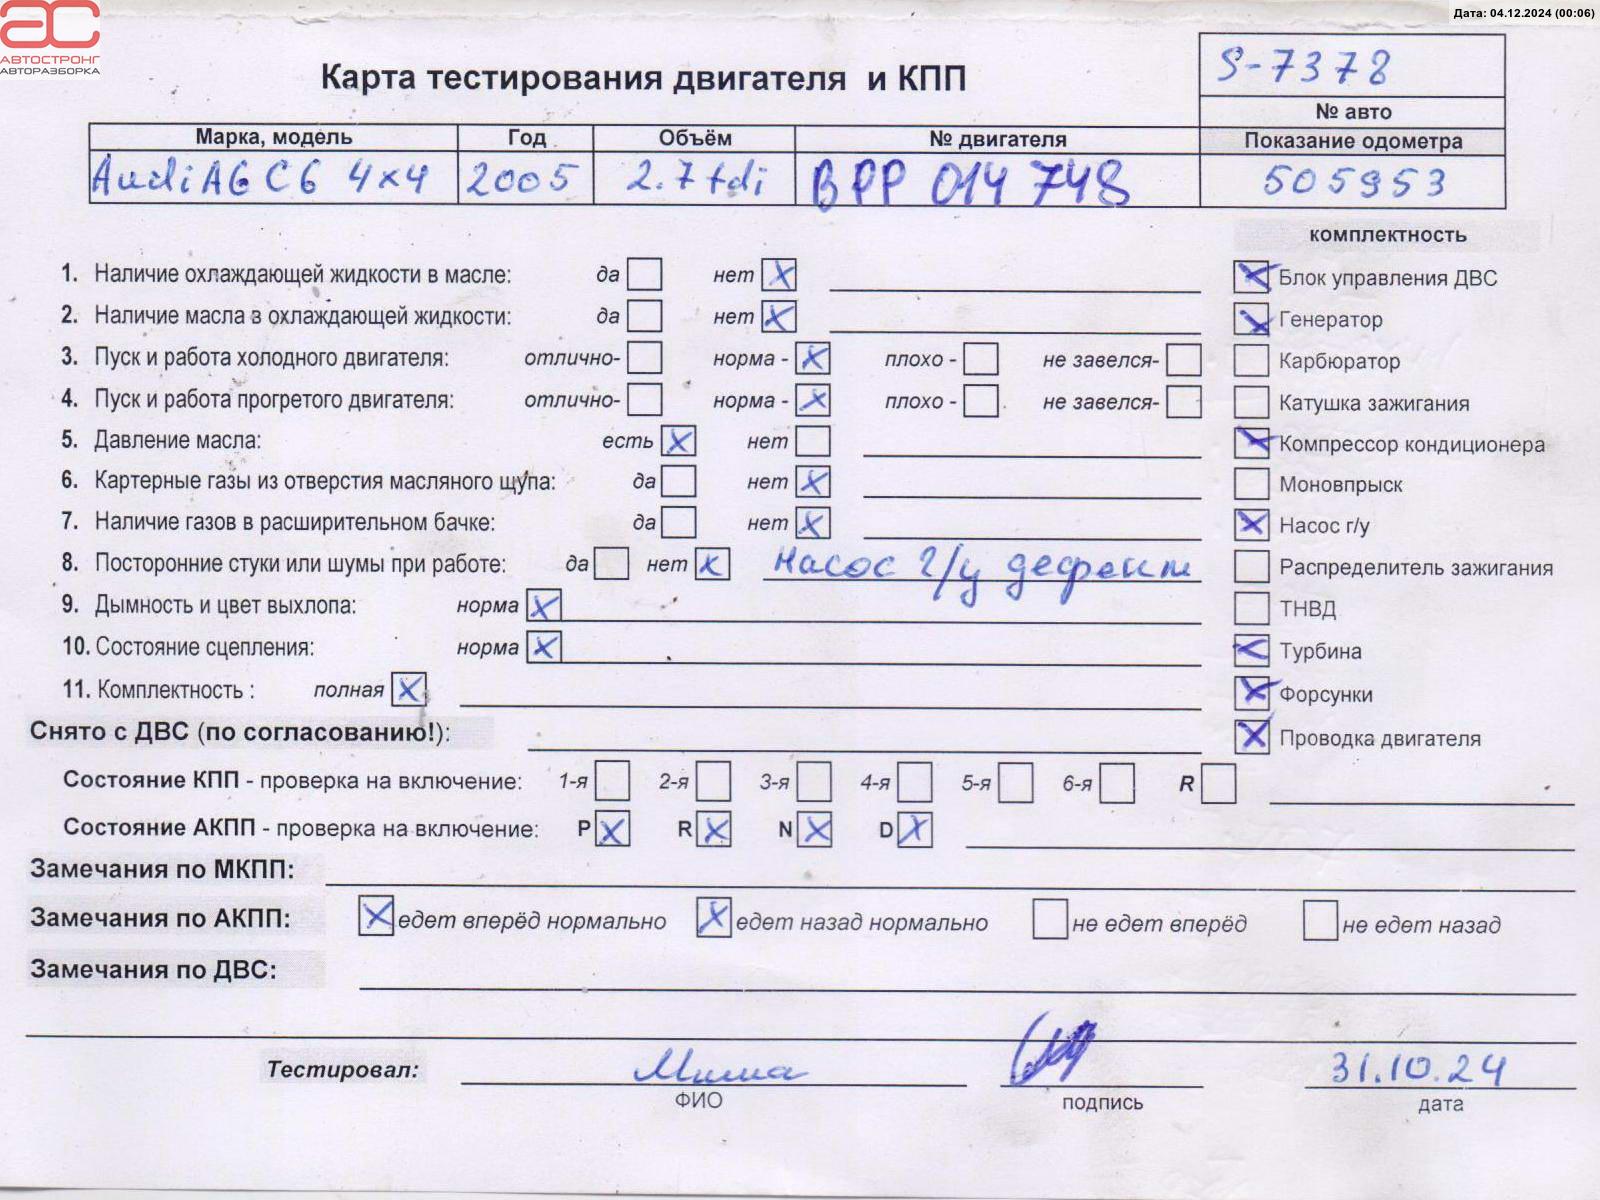 Дата: 04.12.2024 (00:06)
АВТОСТРОНГ
АВТОРАЗБОРКА
Карта тестирования двигателя и КПП
S-7378
№ авто
Марка, модель Год Объём № двигателя Показание одометра
Audi A6 C6 4x4 2005 2.7 tdi BPP 014 748 505953
комплектность
1. Наличие охлаждающей жидкости в масле: да нет X
Блок управления ДВС
2. Наличие масла в охлаждающей жидкости: да нет X
Генератор
3. Пуск и работа холодного двигателя: отлично- норма - X плохо - не завелся-
Карбюратор
4. Пуск и работа прогретого двигателя: отлично- норма - X плохо - не завелся-
Катушка зажигания
5. Давление масла: есть X нет
Компрессор кондиционера
6. Картерные газы из отверстия масляного щупа: да нет X
Моновпрыск
7. Наличие газов в расширительном бачке: да нет X
Насос г/у
8. Посторонние стуки или шумы при работе: да нет X Насос г/у дефект
Распределитель зажигания
9. Дымность и цвет выхлопа: норма X
ТНВД
10. Состояние сцепления: норма X
Турбина
11. Комплектность : полная X
Форсунки
Снято с ДВС (по согласованию!):
Проводка двигателя
Состояние КПП - проверка на включение: 1-я 2-я 3-я 4-я 5-я 6-я R
Состояние АКПП - проверка на включение: P X R X N X D X
Замечания по МКПП:
Замечания по АКПП: X едет вперёд нормально X едет назад нормально не едет вперёд не едет назад
Замечания по ДВС:
Тестировал: Миша 31.10.24
ФИО подпись дата